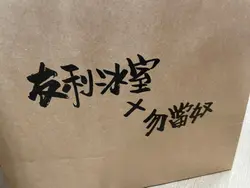 友利冰室
×
勿當奴